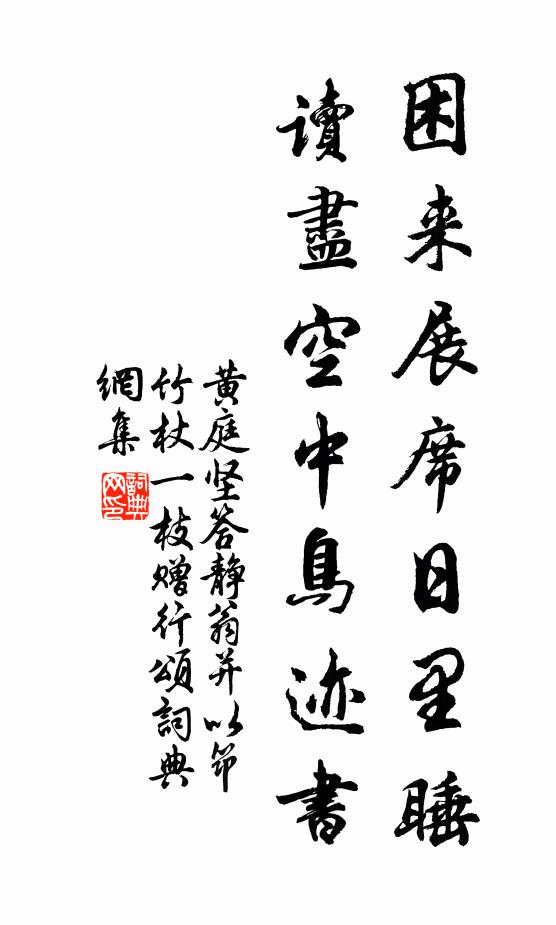 困来展席日里睡
讀盡空中鳥迹書
黄庭坚答静翁并以笻
竹杖一枝赠行頌詞典
網集
詞典
网印